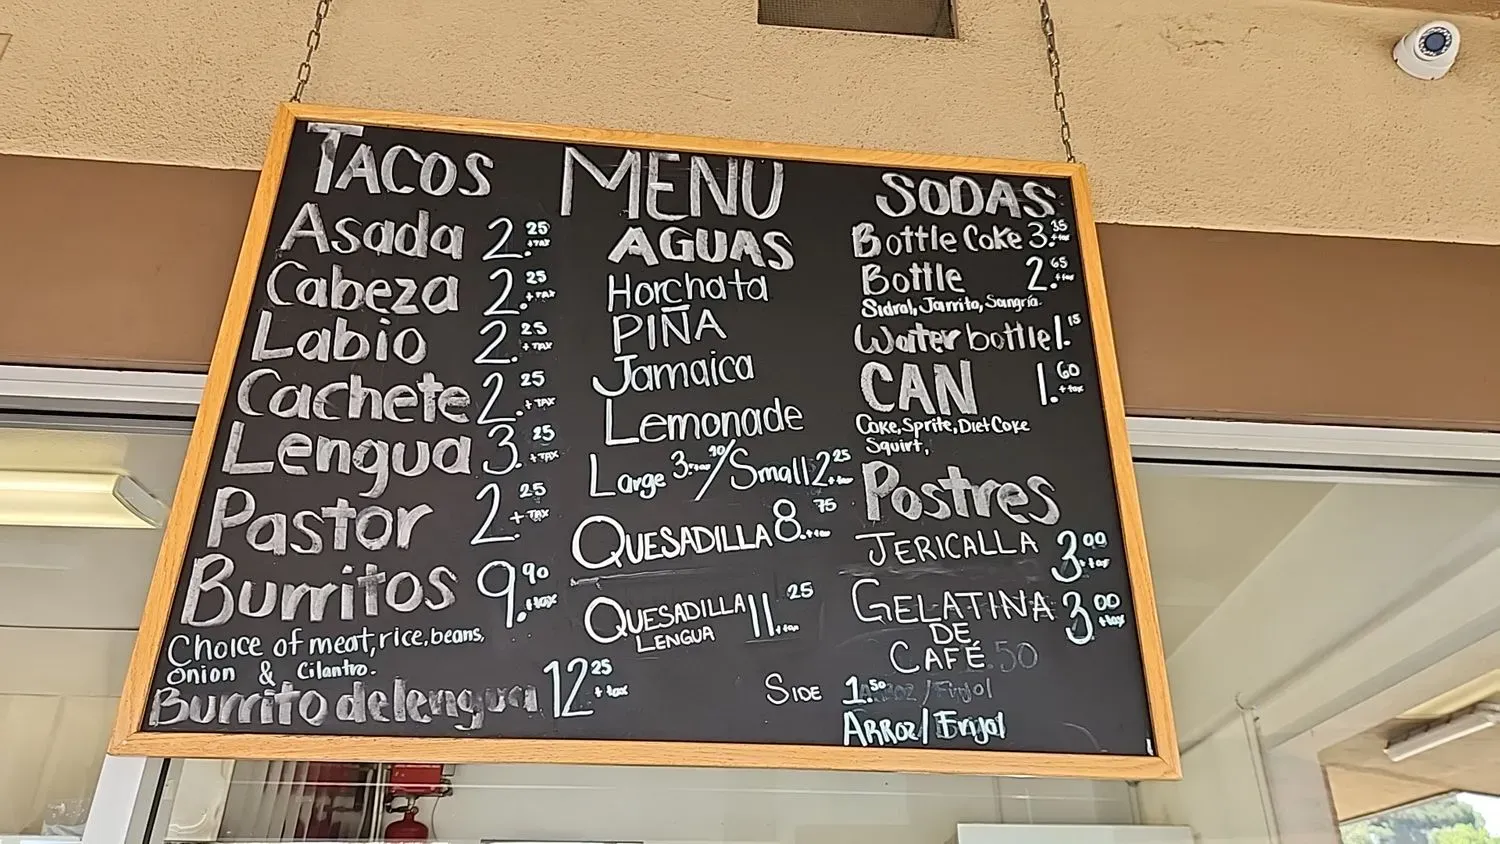 TACOS
Asada 2.25 +TAX
Cabeza 2.25 +TAX
Labio 2.25 +TAX
Cachete 2.25 +TAX
Lengua 3.25 +TAX
Pastor 2.25 +TAX
Burritos 9.90 +tax
Choice of meat, rice, beans,
Onion & Cilantro.
Burrito de lengua 12.25 +tax
MENU
AGUAS
Horchata
PIÑA
Jamaica
Lemonade
Large 3.90 +tax / Small 2.25 +tax
QUESADILLA 8.75 +tax
QUESADILLA LENGUA 11.25 +tax
SODAS
Bottle Coke 3.35 +tax
Bottle 2.65 +tax
Sidral, Jarrito, Sangria.
Water bottle 1.15
CAN 1.60 +tax
Coke, Sprite, Diet Coke
Squirt,
Postres
JERICALLA 3.00 +tax
GELATINA 3.00 +tax
DE
CAFÉ
SIDE 1.50
ARROZ/Frijol